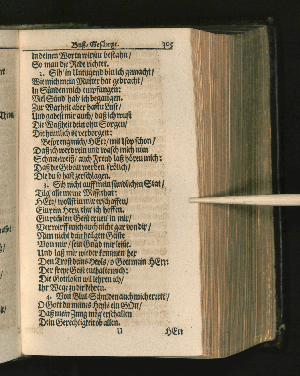 Buß-Gesänge. 305
In deinen Worten wirstu bestahn/
So man die Recht richtet.
2. Sih/ in Untugend bin ich gemacht/
Wie mich mein Mutter hat gebracht/
In Sünden mich empfangen:
Viel Sünd hab ich begangen.
Zur Warheit aber hastu Lust/
Und gabest mir auch/ daß ich wust
Die Weißheit dein ohn Sorgen/
Die heimlich ist verborgen:
Bespreng mich/ HErr/ mit Isop schon/
Daß ich werd rein und wasch mich nun
Schneeweiß/ auch Freud laß hören mich:
Daß die Gebein werden frölich/
Die du so hast zerschlagen.
3. Sih nicht auff mein sündlichen Stat/
Tilg alle meine Missethat:
HErr/ wollst in mir erschaffen/
Ein rein Hertz
Ein richtigen Geist erneu in mir/
Verwirff mich auch nicht gar von dir/
Nim nicht dein heilgen Geiste
Von mir/ dein Gnad mir leiste.
Und laß mir wieder kommen her
Den Trost deins Heyls/ o Gott mein HErr:
Der freye Geist enthalte mich:
Die Gottlosen wil lehren ich/
Ihr Wege zu dir kehren.
4. Von Blut-Schulden auch mich errett/
O Gott du meines Heyls ein GOtt/
Daß mein Zung mög erschallen
Dein Gerechtigkeit ob allen.
U HErr